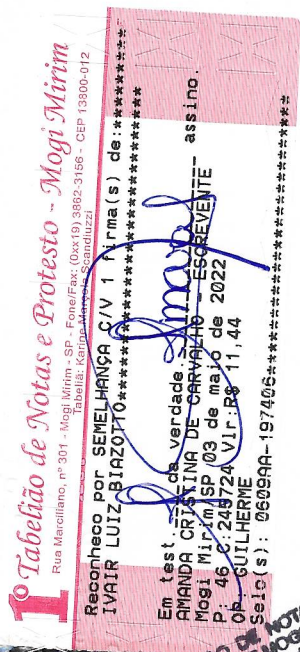 1º Tabelião de Notas e Protesto - Mogi Mirim
Rua Marciliano, nº 301 - Mogi Mirim - SP - Fone/Fax: (0xx19) 3862-3156 - CEP 13800-012
Tabeliã: Karine Marçola Scandiuzzi
Reconheco por SEMELHANSA C/V 1 firma(s) de:**********
IVAIR LUIZ BIAZOTTO**********************************
Em test. da verdade. assino.
AMANDA CRISTINA DE CARVALHO - ESCREVENTE
Mogi Mirim/SP 03 de maio de 2022
P: 46 C:245724 Vlr:R$ 11,44
Op. GUILHERME
Selo(s): 0609AA-197406*******************
DE NOTAS
MOGI